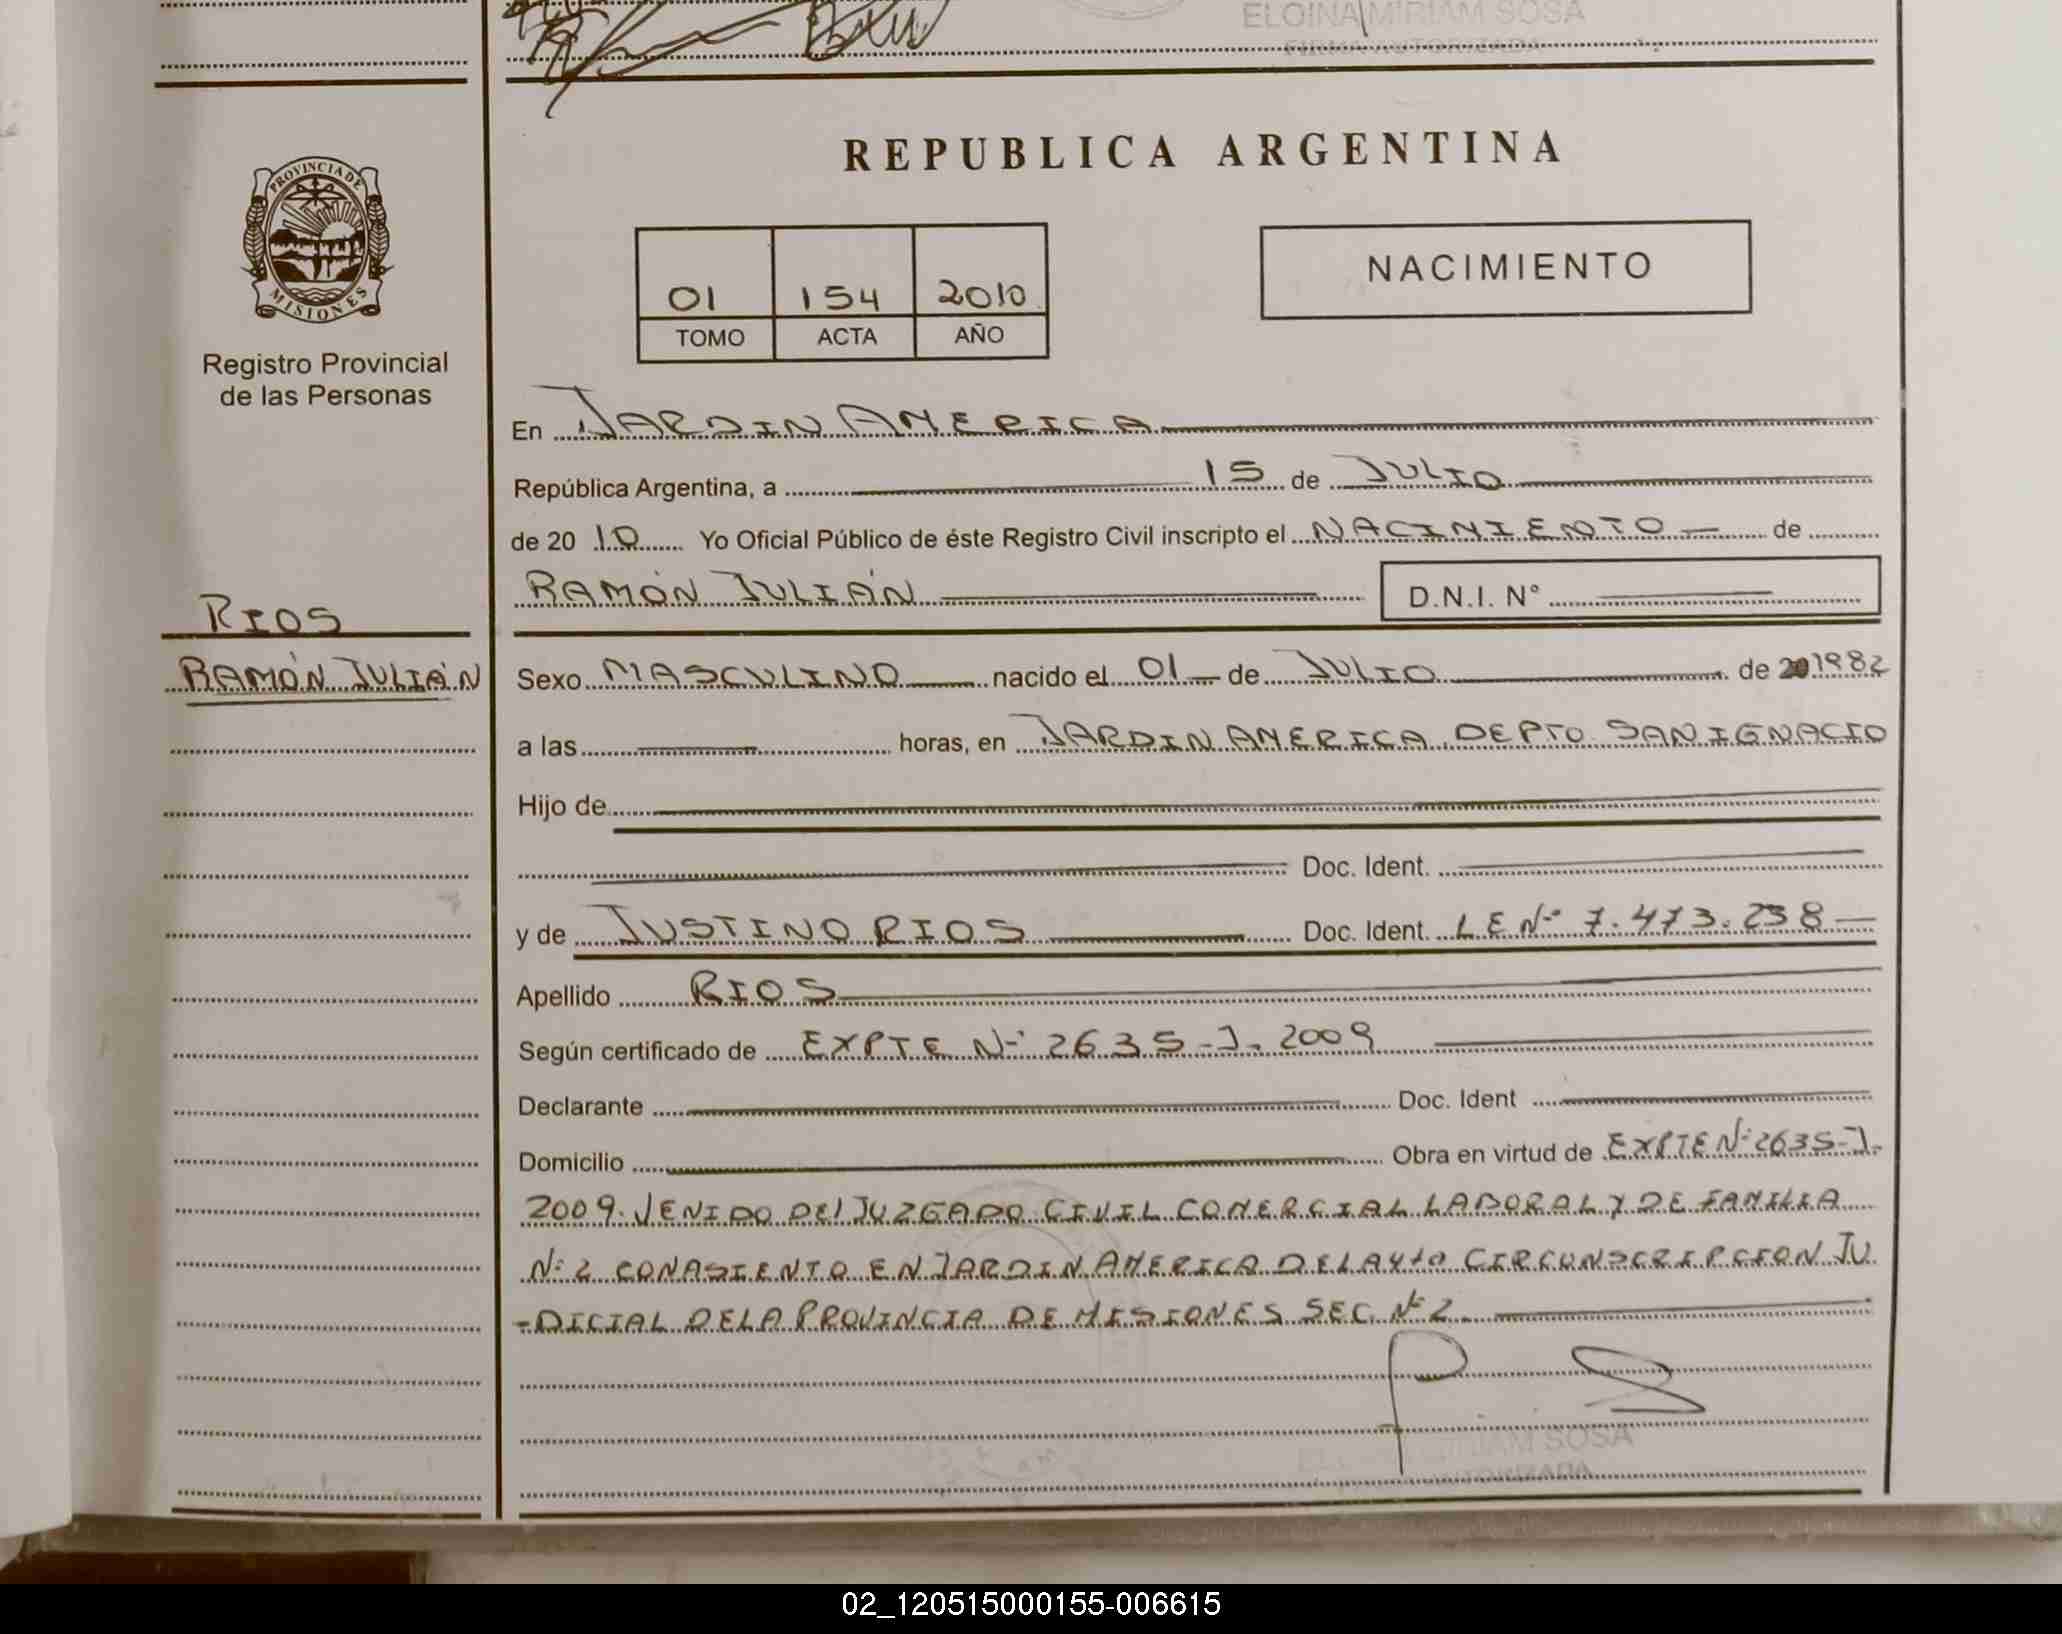 ELOINA MIRIAM SOSA
FIRMA AUTORIZADA
PROVINCIA DE
MISIONES
Registro Provincial
de las Personas
REPUBLICA ARGENTINA
01 154 2010
TOMO ACTA AÑO
NACIMIENTO
En JARDIN AMERICA
República Argentina, a 15 de JULIO
de 20 10 Yo Oficial Público de éste Registro Civil inscripto el NACIMIENTO de
RAMÓN JULIÁN D.N.I. N°
RIOS
RAMÓN JULIÁN
Sexo MASCULINO nacido el 01 de JULIO de 20 1982
a las horas, en JARDIN AMERICA DEPTO SAN IGNACIO
Hijo de
Doc. Ident.
y de JUSTINO RIOS Doc. Ident. LE Nº 7.473.238
Apellido RIOS
Según certificado de EXPTE Nº 2635-J-2009
Declarante Doc. Ident
Domicilio Obra en virtud de EXPTE Nº 2635-J-
2009. VENIDO DEL JUZGADO CIVIL COMERCIAL LABORAL Y DE FAMILIA
Nº 2 CON ASIENTO EN JARDIN AMERICA DE LA 4ta CIRCUNSCRIPCION JU
-DICIAL DE LA PROVINCIA DE MISIONES SEC. Nº 2.
MIRIAM SOSA
02_120515000155-006615